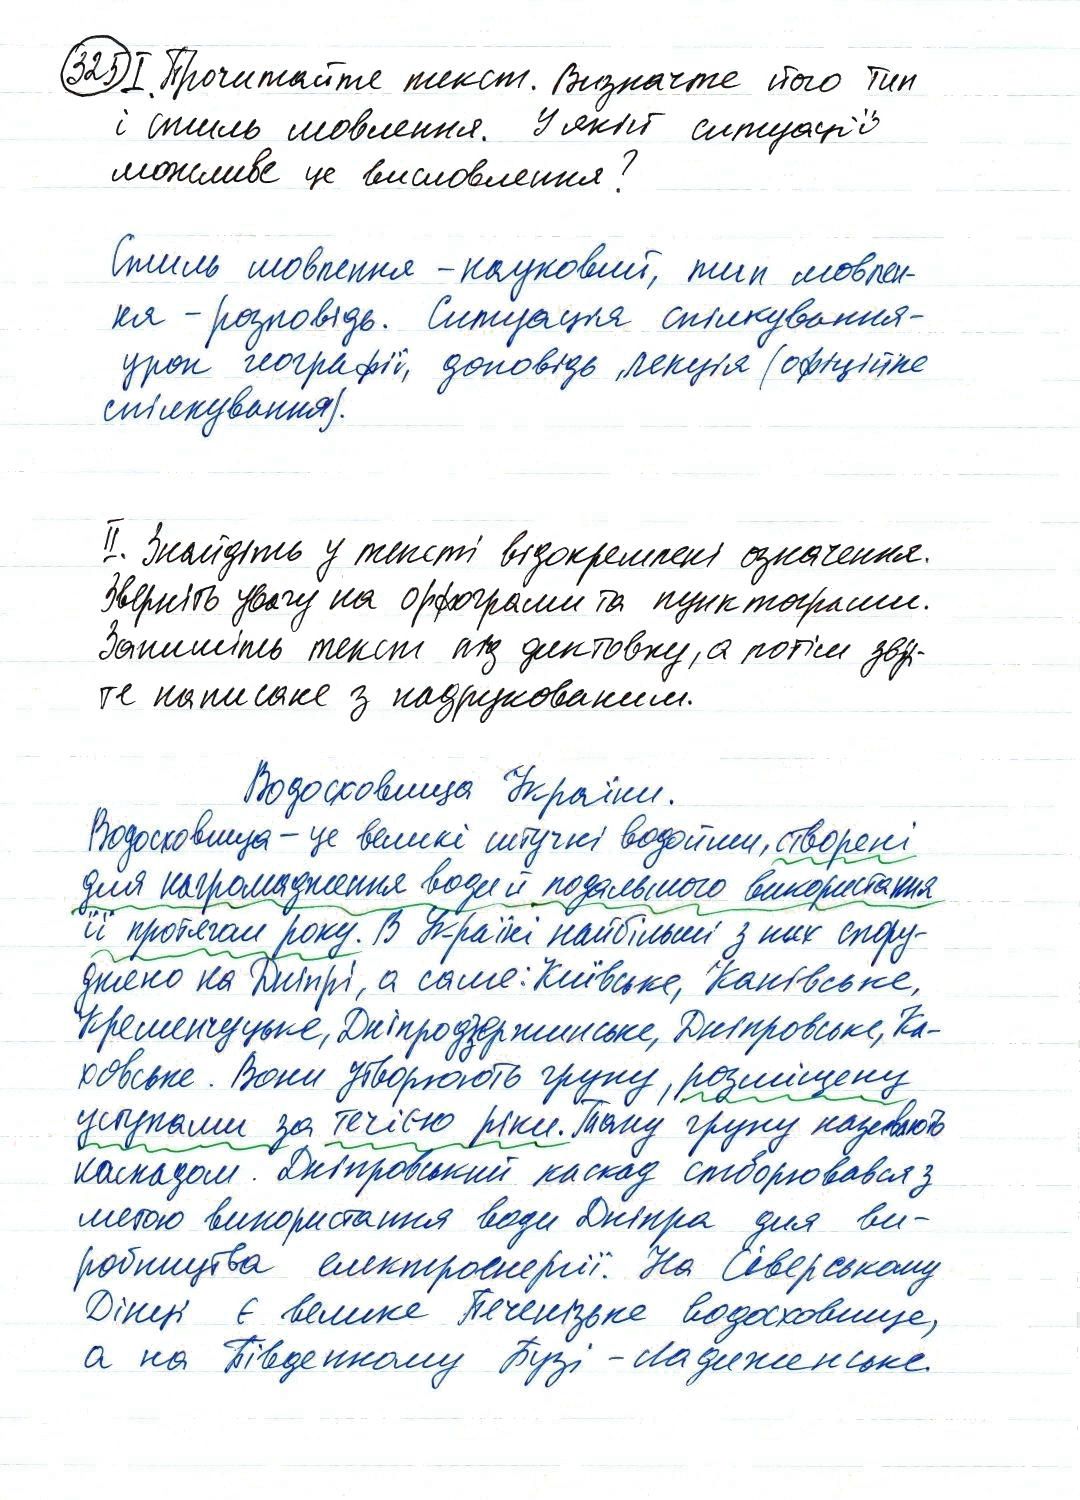 325 I. Прочитайте текст. Визначте його тип
і стиль мовлення. У якій ситуації
можливе це висловлення?
Стиль мовлення – науковий, тип мовлен-
ня – розповідь. Ситуація спілкування –
урок географії, доповідь, лекція (офіційне
спілкування).
II. Знайдіть у тексті відокремлені означення.
Зверніть увагу на орфограми та пунктограми.
Запишіть текст під диктовку, а потім зві-
те написане з надрукованим.
Водосховища України.
Водосховища – це великі штучні водойми, створені
для нагромадження води й подальшого використання
її протягом року. В Україні найбільші з них спору-
джено на Дніпрі, а саме: Київське, Канівське,
Кременчуцьке, Дніпродзержинське, Дніпровське, Ка-
ховське. Вони утворюють групу, розміщену
уступами за течією ріки. Таку групу називають
каскадом. Дніпровський каскад створювався з
метою використання води Дніпра для ви-
робництва електроенергії. На Сіверському
Дінці є велике Печенізьке водосховище,
а на Південному Бузі – Ладиженське.